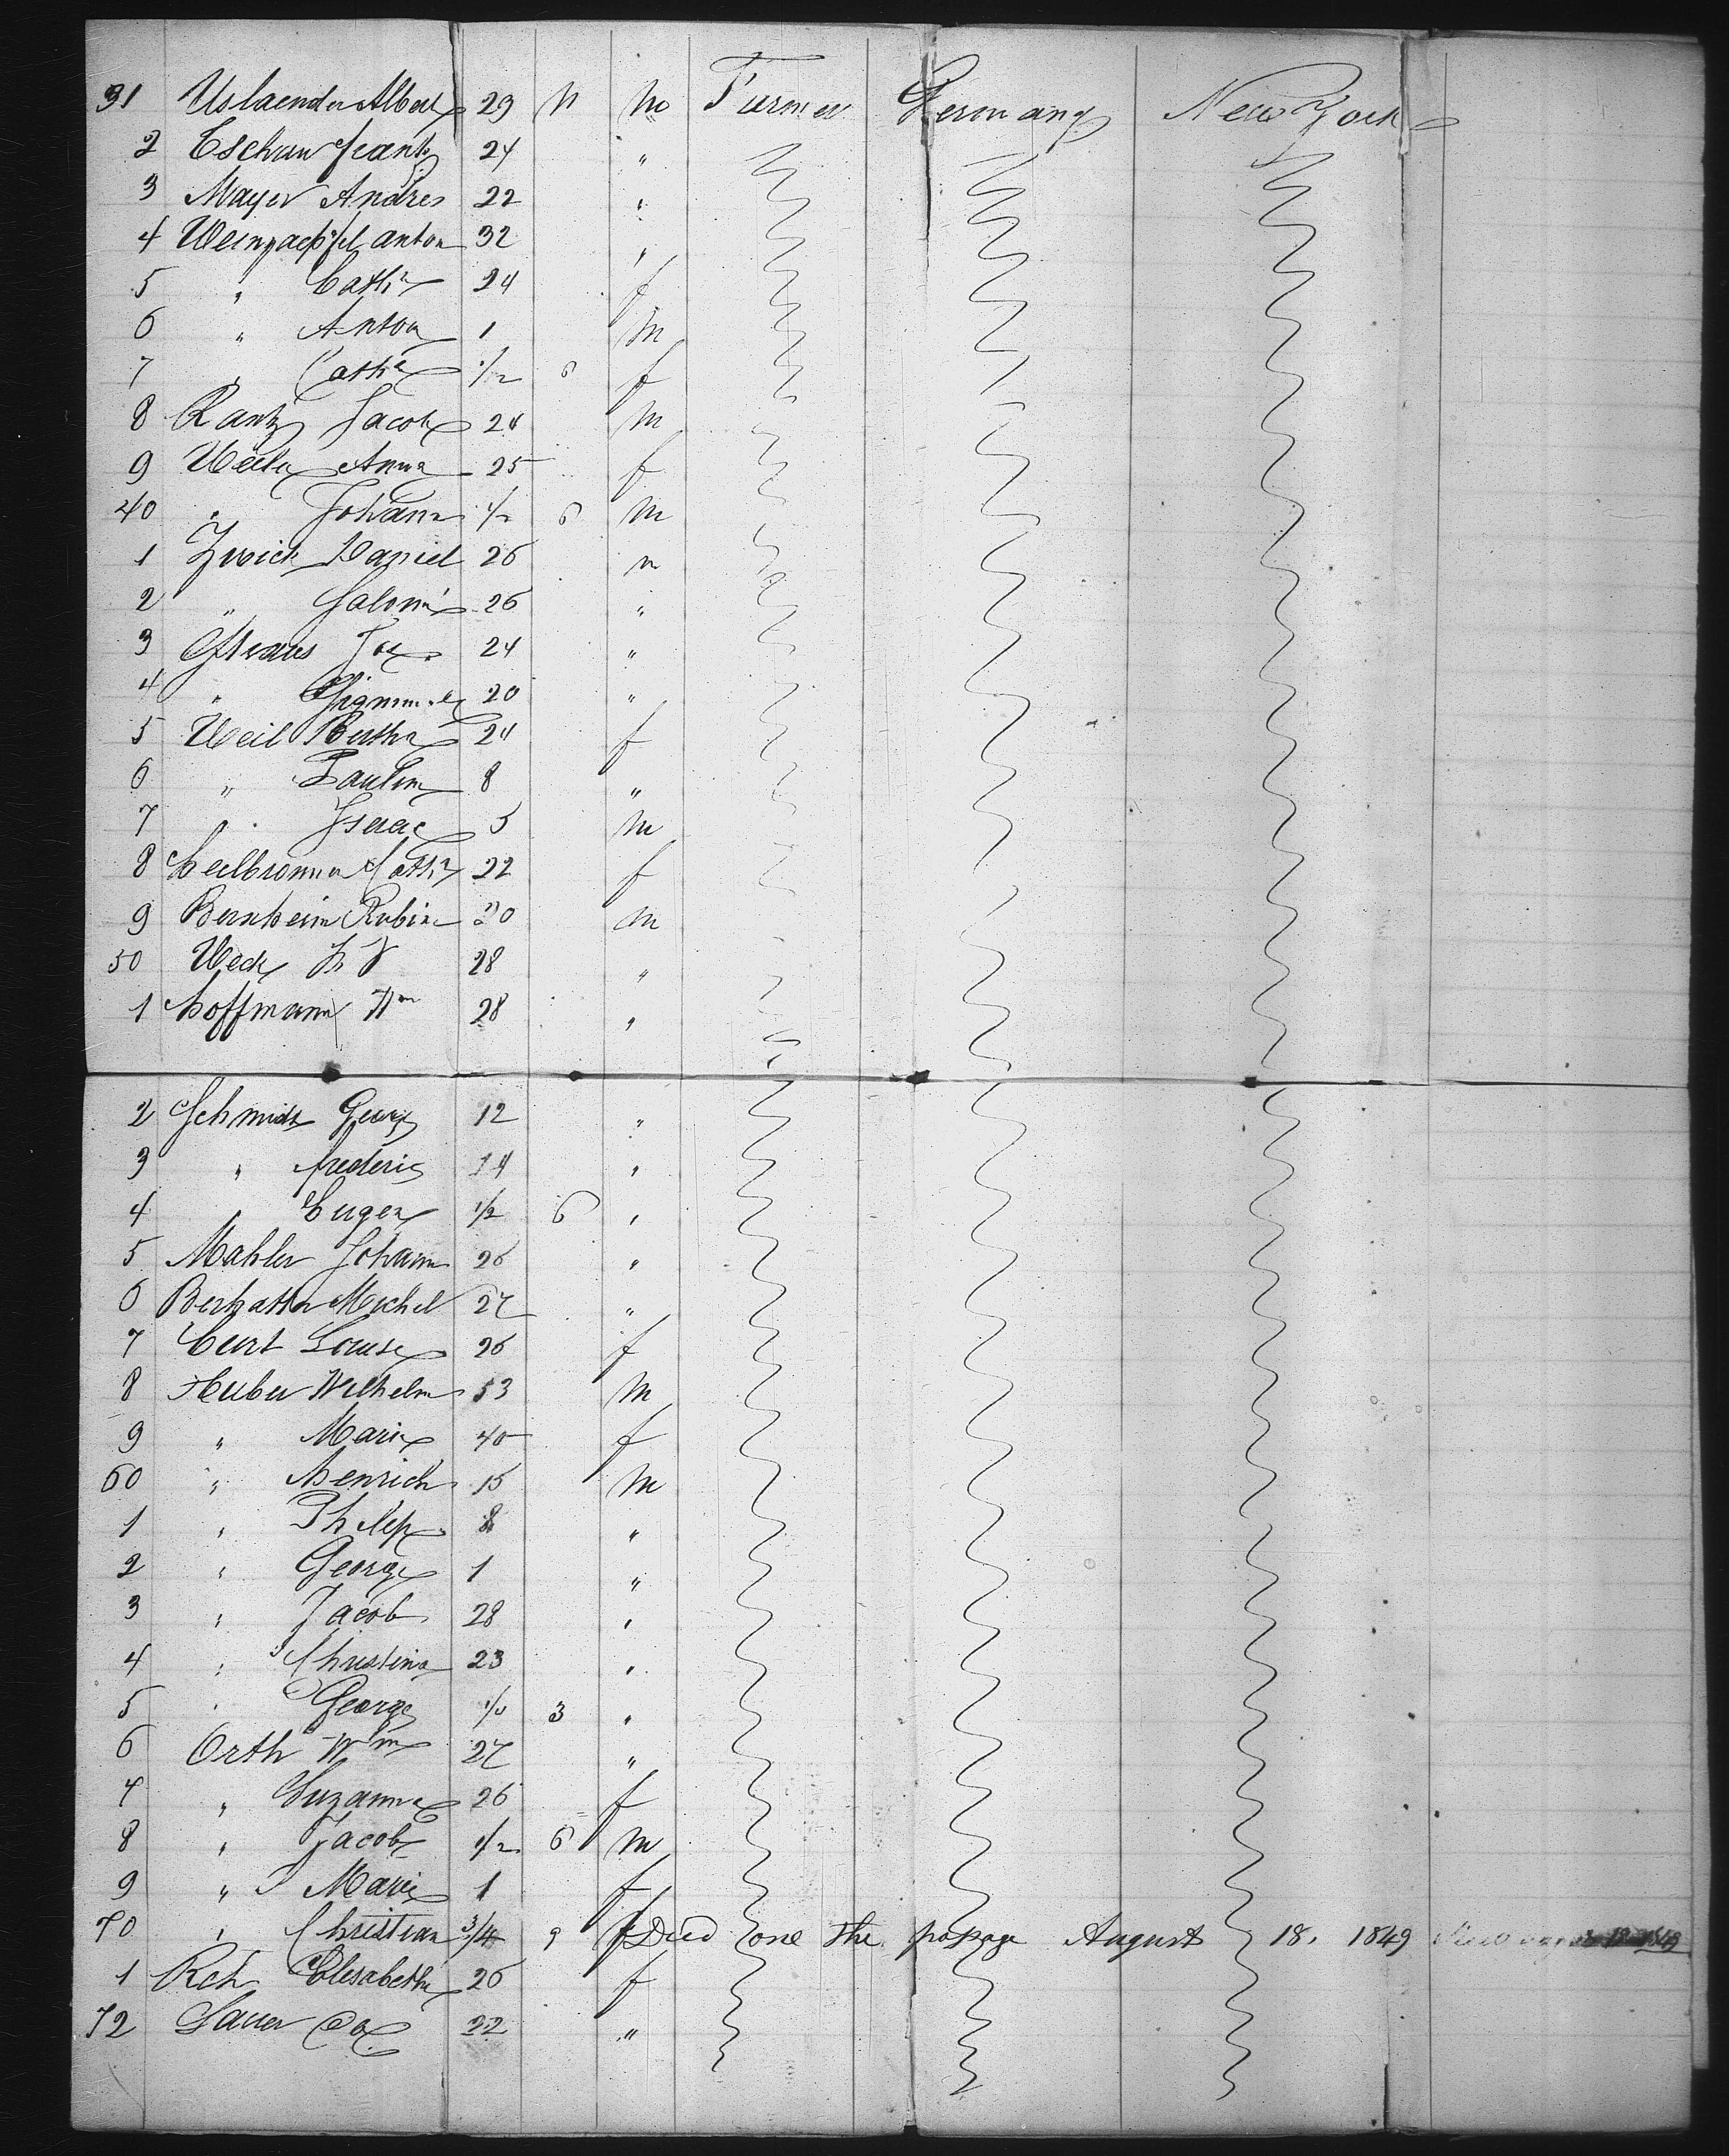 31 Uslaender Albert 29 m Farmer Germany New York
2 Eschan 24 "
3 Mayer Andres 22 "
4 Weinzaepfel anton 32 "
5 " Cathe 24 f
6 " Anton 1 m
7 " Cathe 1/2 6 f
8 Rantz Jacob 24 m
9 Anna 25 f
40 " Johann 1/2 6 m
1 Zwick Daniel 26 m
2 " Salome 26 "
3 Straus 24 "
4 " 20 "
5 Weil Bertha 24 f
6 " Paulin 8 "
7 " Isaac 5 m
8 heilbronner Cathe 22 f
9 Bernheim Rubin 20 m
50 Weck 28 "
1 hoffmann Wm 28 "
2 Schmidt Georg 12 "
3 " frederic 14 "
4 " Eugen 1/2 6 "
5 Mahler Johann 26 "
6 Michel 27 "
7 Curt Louise 26 f
8 Huber Wilhelm 53 m
9 " Marie 40 f
60 " henrich 15 m
1 " Philip 8 "
2 " George 1 "
3 " Jacob 28 "
4 " Christina 23 "
5 " George 3 "
6 Orth Wm 27 "
7 " Suzanna 26 f
8 " Jacob 1/2 6 m
9 " Marie 1 f
70 " Christian 3/4 9 f Died one the passage August 18. 1849
1 Reh Elisabeth 26 f
72 Sauer 22 "